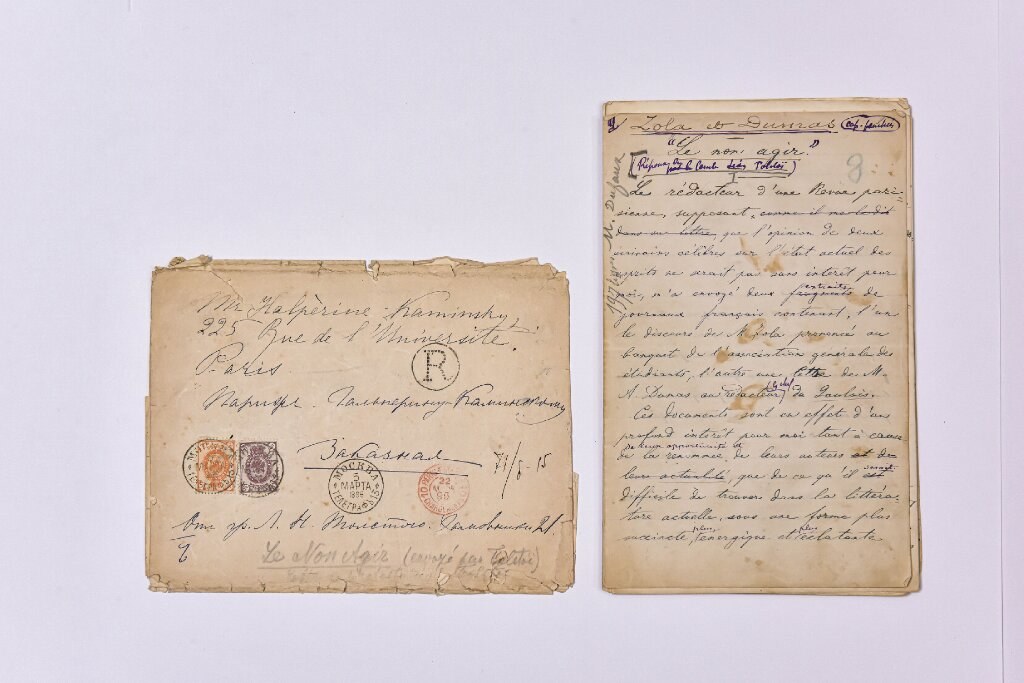 Mr Halpèrine Kaminsky,
225 Rue de l'Université.
Paris
R
Парижъ. Гальперину-Каминскому
Заказная
71/6-15
МОСКВА
5
МАРТА
ТЕЛЕГРАФЪ
От гр. Л. Н. Толстого. Хамовники 21.
Le Non Agir (envoyé par Tolstoï)
Zola et Dumas
"Le non agir."
(Réponse par le Comte Léon Tolstoï)
M. Dufaux
Le rédacteur d'une Revue pari-
sienne, supposant, comme il me le dit
dans sa lettre que l'opinion de deux
écrivains célèbres sur l'état actuel des
esprits ne serait pas sans intérêt pour
moi, m'a envoyé deux fragments de
journaux français contenant, l'un
le discours de M. Zola prononcé au
banquet de l'association générale des
étudiants, l'autre une lettre de M.
A. Dumas au rédacteur du Gaulois.
Ces documents sont en effet d'un
profond intérêt pour moi tant à cause
de la renommée de leurs auteurs et de
leur actualité, que de ce qu'il est serait
difficile de trouver dans la littéra-
ture actuelle, sous une forme plus
concise, plus énergique et plus éclatante